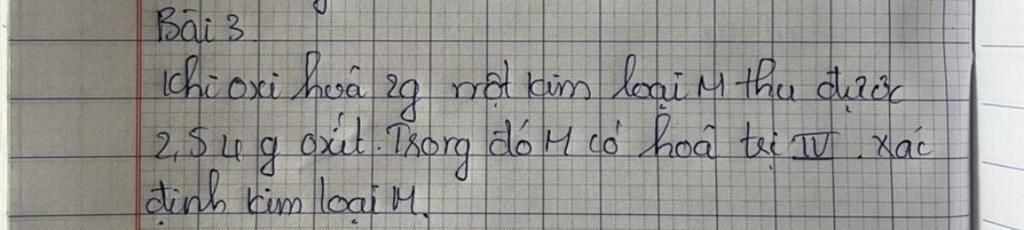 Bài 3.
Khi oxi hoá 2g một kim loại M thu được
2,54 g oxit. Trong đó M có hoá trị IV. Xác
định kim loại M.